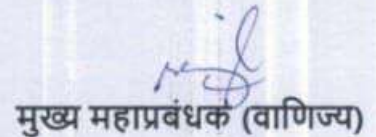 मुख्य महाप्रबंधक (वाणिज्य)